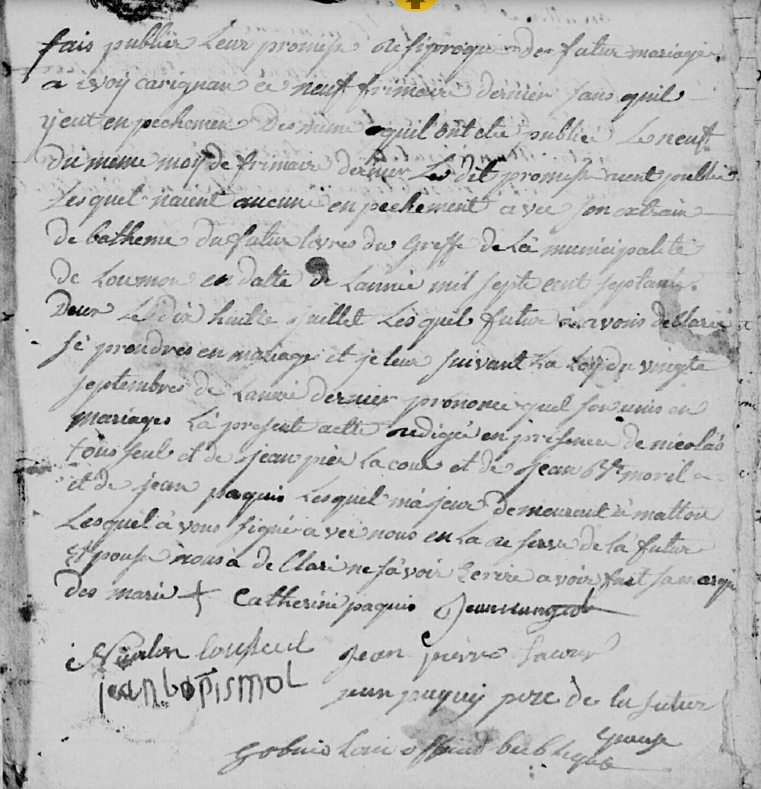 fais publier Leur promesse resiproque de futur mariage
a ivoy carignan ce neuf frimaire dernier sans quil
yeut en pechemen Desmeme quil ont etee publiee Le neuf
du meme moy de frimaire dernier Les dit promesse aient publier
Les quel naient aucune en pechement avec son extrain
de batheme du futur livres du Greffe de La municipalité
de Loumon en datte de Lannée mil septe cent septante
Deux Le dix huitte juillet Les quel futur avons de Clarée
sé prendres en mariage et je leur suivant La Loy du vingte
septembres de Lannée dernier prononce quel son unis en
mariages La presente acte redigée en presence de nicolas
tousseul et de jean piere La cour et de jean bte morel
et de jean paquis Lesquel majeur demeurant a matton
Lesquel a vons signé avec nous en La reserve de la futur
Epouse nous a de Claré ne savoir Ecrire avoir fait sa marque
des marié + Catherine paquis
Nicolas tousseul jean pierre Lacour
jean bapis mol jean paquis pere de la futur
Epouse
officié publique